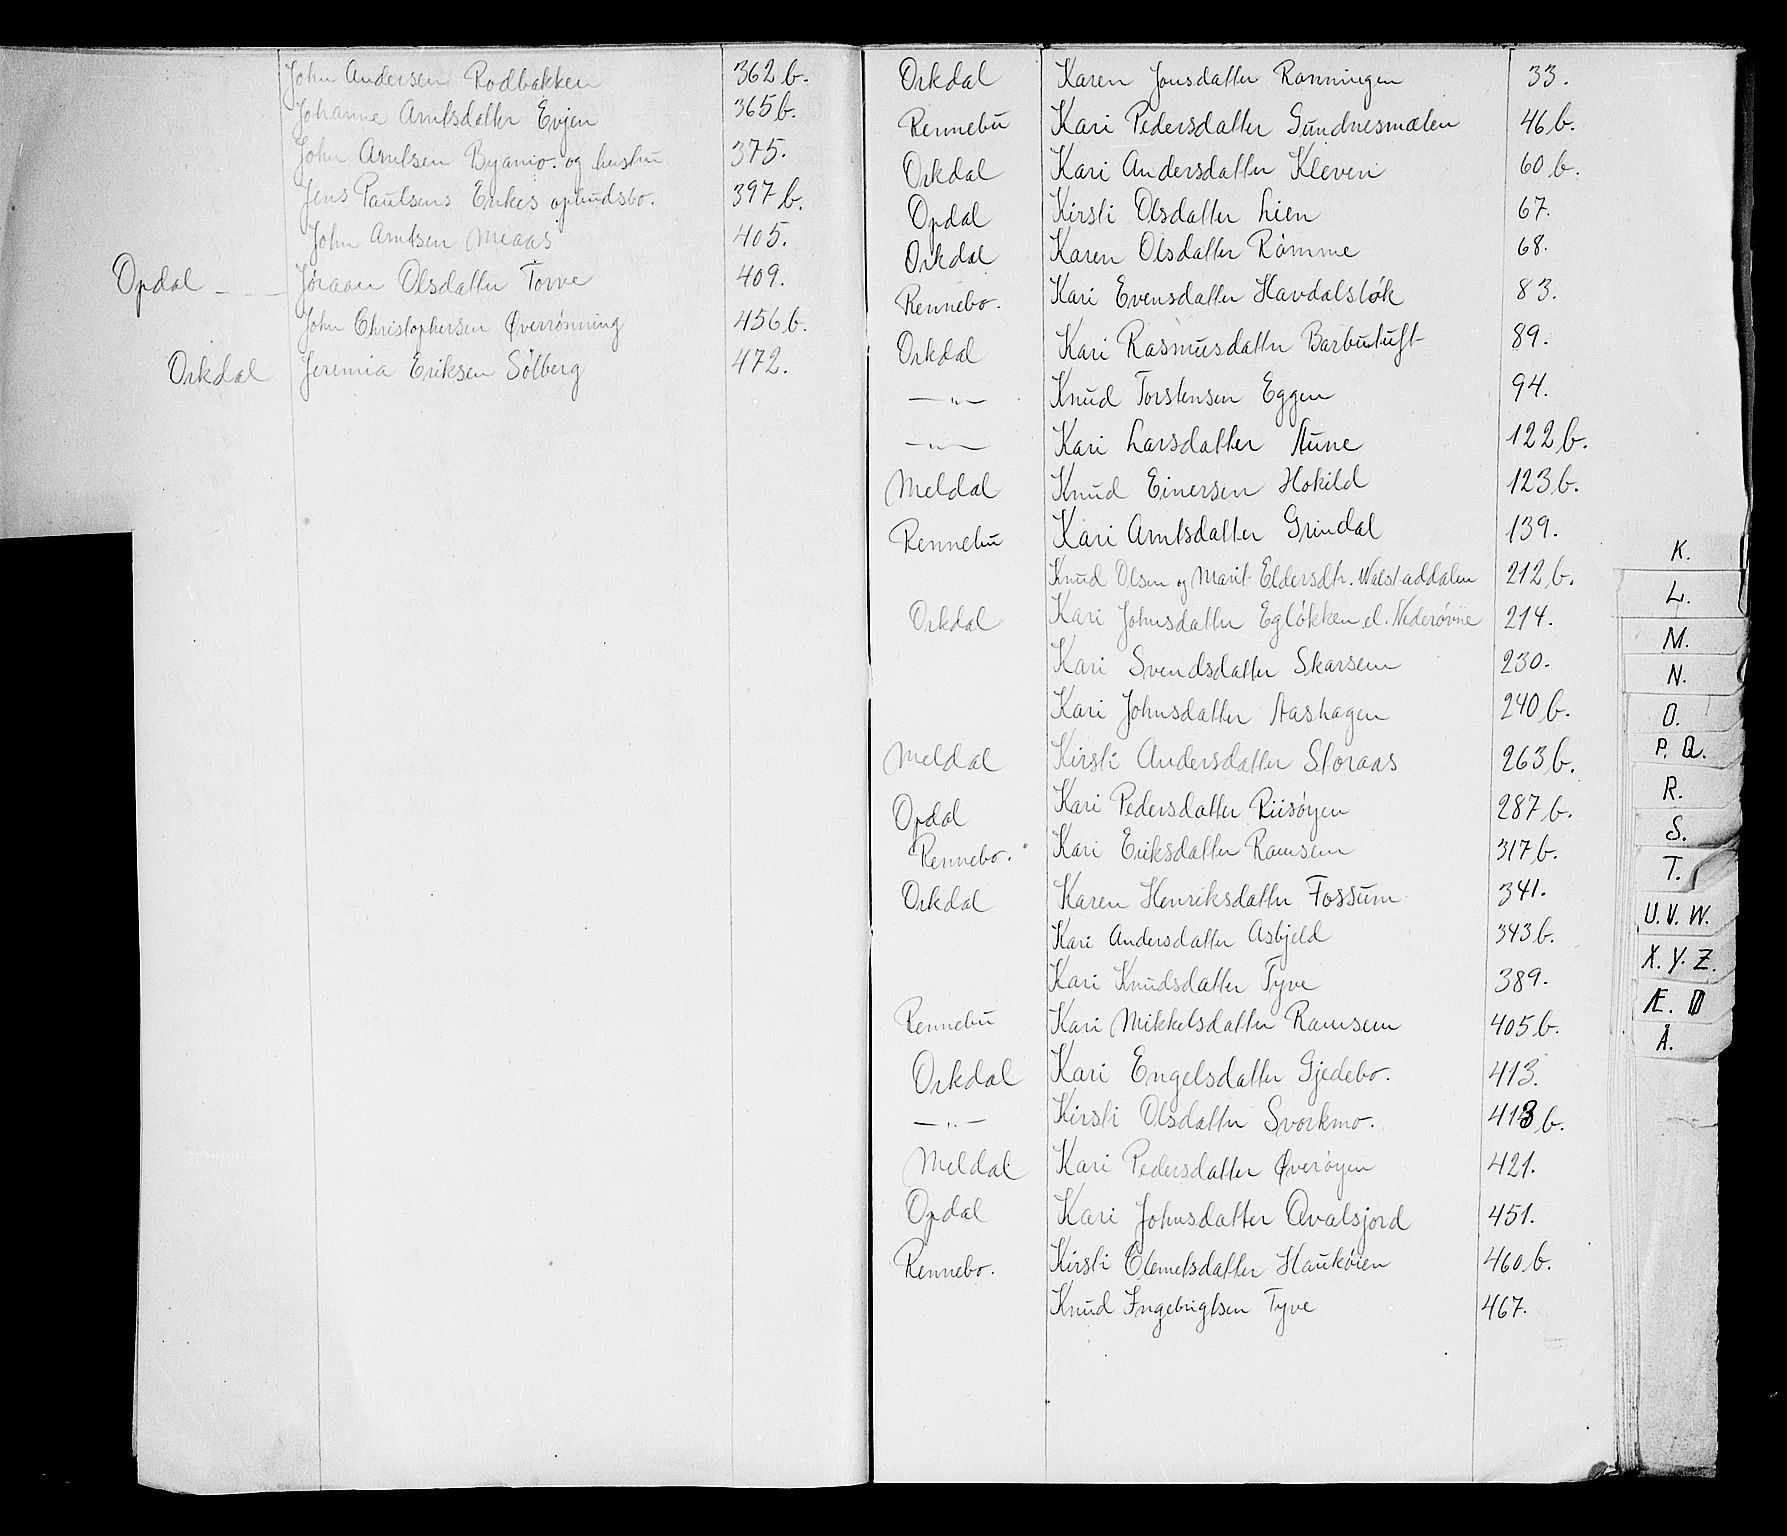 John Andersen Rodbakken 362 b.
Johanne Arntsdatter Evjen 365 b.
John Arntsen Byamo. og hustru 375.
Jens Paulsens Enkes opbudsbo. 397 b.
John Arntsen Meaas 405.
Opdal — — Jøraan Olsdatter Torve 409.
John Christophersen Øverrønning 456 b.
Orkdal Jeremia Eriksen Sølberg 472.
Orkdal Karen Jonsdatter Ronningen 33.
Rennebu Kari Pedersdatter Gundnesmælen 46 b.
Orkdal Kari Andersdatter Kleven 60 b.
Opdal Kirsti Olsdatter Lien 67.
Orkdal Karen Olsdatter Rømme 68.
Rennebo. Kari Evensdatter Havdalsløk 83.
Orkdal Kari Rasmusdatter Barbutuft 89.
—„— Knud Torstensen Eggen 94.
—„— Kari Larsdatter Aune 122 b.
Meldal Knud Einersen Hokild 123 b.
Rennebu Kari Arntsdatter Grindal 139.
Knud Olsen og Marit Eldersdtr. Walstaddalen 212 b.
Orkdal Kari Johnsdatter Egløkken el. Nederøvne 214.
Kari Svendsdatter Skarsem 230.
Kari Johnsdatter Aashagen 240 b.
Meldal Kirsti Andersdatter Storaas 263 b.
Opdal Kari Pedersdatter Riisøyen 287 b.
Rennebo. Kari Eriksdatter Ramsem 317 b.
Orkdal Karen Henriksdatter Fossum 341.
Kari Andersdatter Asbjeld 343 b.
Kari Knudsdatter Tyve 389.
Rennebu Kari Mikkelsdatter Ramsem 405 b.
Orkdal Kari Engelsdatter Gjedebo. 413.
—„— Kirsti Olsdatter Svorkmo. 413 b.
Meldal Kari Pedersdatter Øverøyen 421.
Opdal Kari Johnsdatter Qvalsjord 451.
Rennebo. Kirsti Clemetsdatter Haukøien 460 b.
Knud Ingebrigtsen Tyve 467.
K.
L.
M.
N.
O.
P. Q.
R.
S.
T.
U. V. W.
X. Y. Z.
Æ. Ø
Å.